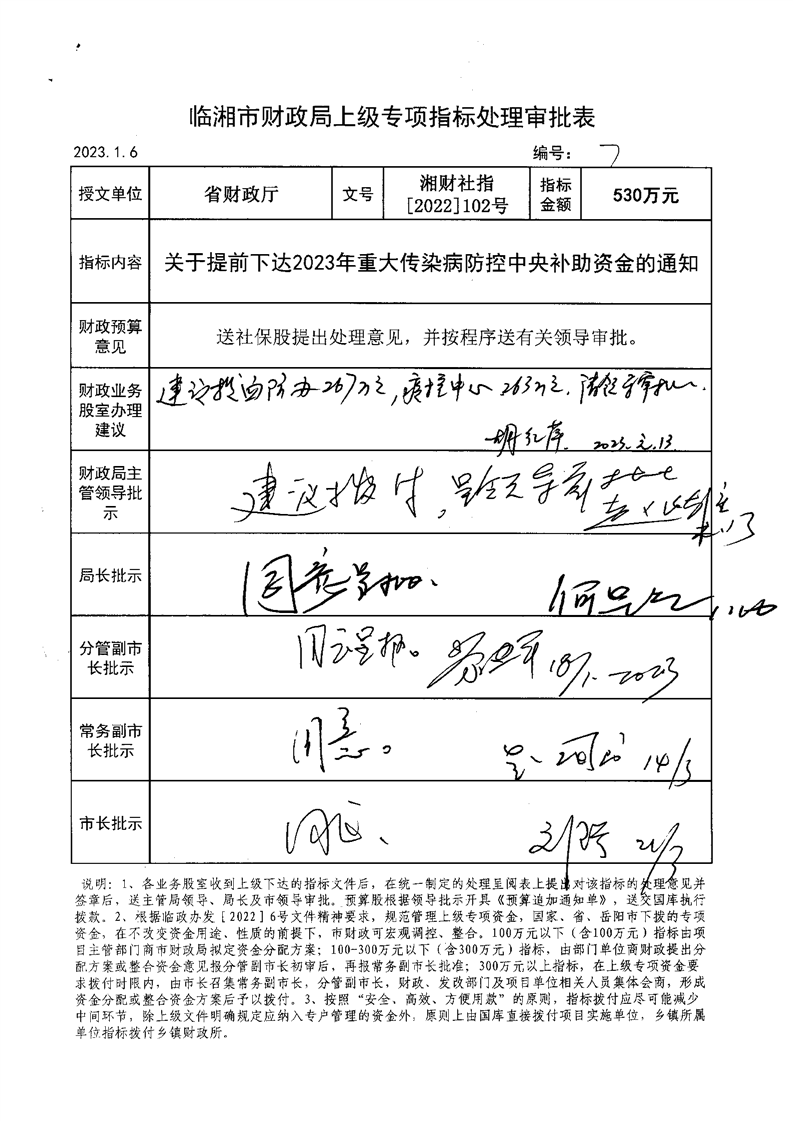 临湘市财政局上级专项指标处理审批表
2023.1.6 编号: 7
授文单位 省财政厅 文号 湘财社指[2022]102号 指标金额 530万元
指标内容 关于提前下达2023年重大传染病防控中央补助资金的通知
财政预算意见 送社保股提出处理意见，并按程序送有关领导审批。
财政业务股室办理建议 建议拨血防办267万元,疾控中心263万元.请领导审批.
胡红萍 2023.元.13
财政局主管领导批示 建议拨付,呈领导审批
局长批示 同意呈批.
分管副市长批示 同意呈批。 18/1-2023
常务副市长批示 同意。 14/3
市长批示 同意、 21/3
说明: 1、各业务股室收到上级下达的指标文件后，在统一制定的处理呈阅表上提出对该指标的处理意见并
签章后，送主管局领导、局长及市领导审批。预算股根据领导批示开具《预算追加通知单》，送交国库执行
拨款。2、根据临政办发[2022]6号文件精神要求，规范管理上级专项资金，国家、省、岳阳市下拨的专项
资金，在不改变资金用途、性质的前提下，市财政可宏观调控、整合。100万元以下（含100万元）指标由项
目主管部门商市财政局拟定资金分配方案；100-300万元以下（含300万元）指标，由部门单位商财政提出分
配方案或整合资金意见报分管副市长初审后，再报常务副市长批准；300万元以上指标，在上级专项资金要
求拨付时限内，由市长召集常务副市长，分管副市长，财政、发改部门及项目单位相关人员集体会商，形成
资金分配或整合资金方案后予以拨付。3、按照“安全、高效、方便用款”的原则，指标拨付应尽可能减少
中间环节，除上级文件明确规定应纳入专户管理的资金外，原则上由国库直接拨付项目实施单位，乡镇所属
单位指标拨付乡镇财政所。